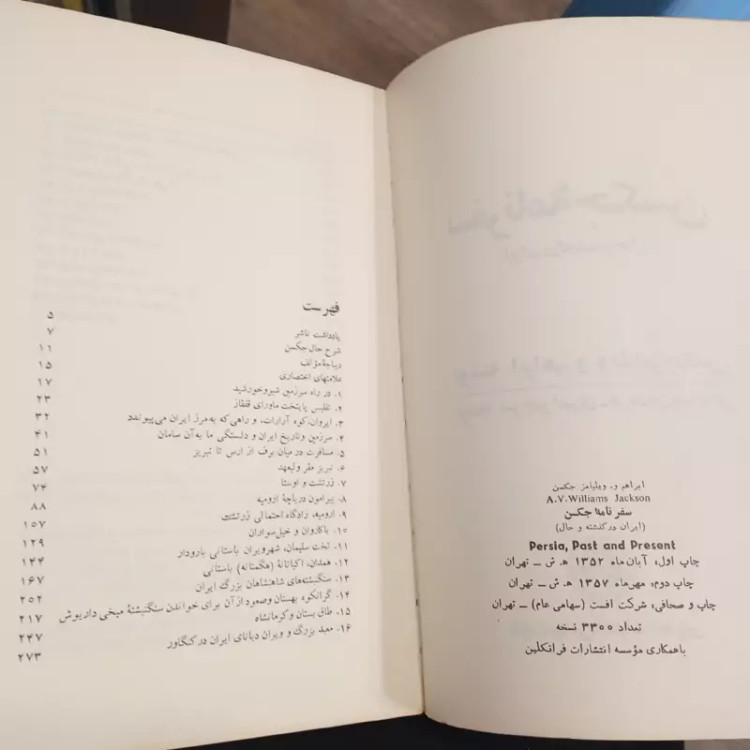 ابراهم و. ویلیامز جکسن
A.V.Williams Jackson
سفرنامهٔ جکسن
(ایران در گذشته و حال)
Persia, Past and Present
چاپ اول، آبان ماه ۱۳۵۲ ه‍. ش ـ تهران
چاپ دوم، مهرماه ۱۳۵۷ ه‍. ش ـ تهران
چاپ و صحافی، شرکت افست (سهامی عام) ـ تهران
تعداد ۳۳۰۰ نسخه
باهمکاری مؤسسه انتشارات فرانکلین
فهرست
یادداشت ناشر ۵
شرح حال جکسن ۷
دیباچهٔ مؤلف ۱۱
علامتهای اختصاری ۱۵
۱. در راه سرزمین شیروخورشید ۱۷
۲. تفلیس پایتخت ماورای قفقاز ۲۳
۳. ایروان، کوه آرارات، و راهی که به مرز ایران می‌پیوندد ۳۲
۴. سرزمین وتاریخ ایران و دلبستگی ما به آن سامان ۴۱
۵. مسافرت در میان برف از ارس تا تبریز ۵۱
۶. تبریز مقر ولیعهد ۵۷
۷. زرتشت و اوستا ۷۴
۸. پیرامون دریاچهٔ ارومیه ۸۸
۹. ارومیه، زادگاه احتمالی زرتشت ۱۰۷
۱۰. باکاروان و خیل سواران ۱۲۹
۱۱. تخت سلیمان، شهر ویران باستانی بارودار ۱۴۴
۱۲. همدان، اکباتانهٔ (هگمتانه) باستانی ۱۶۷
۱۳. سنگنبشته‌های شاهنشاهان بزرگ ایران ۲۰۲
۱۴. گرانکوه بهستان وصعود از آن برای خواندن سنگنبشتهٔ میخی داریوش ۲۱۷
۱۵. طاق بستان وکرمانشاه ۲۴۷
۱۶. معبد بزرگ و ویران دیانای ایران در کنگاور ۲۷۳